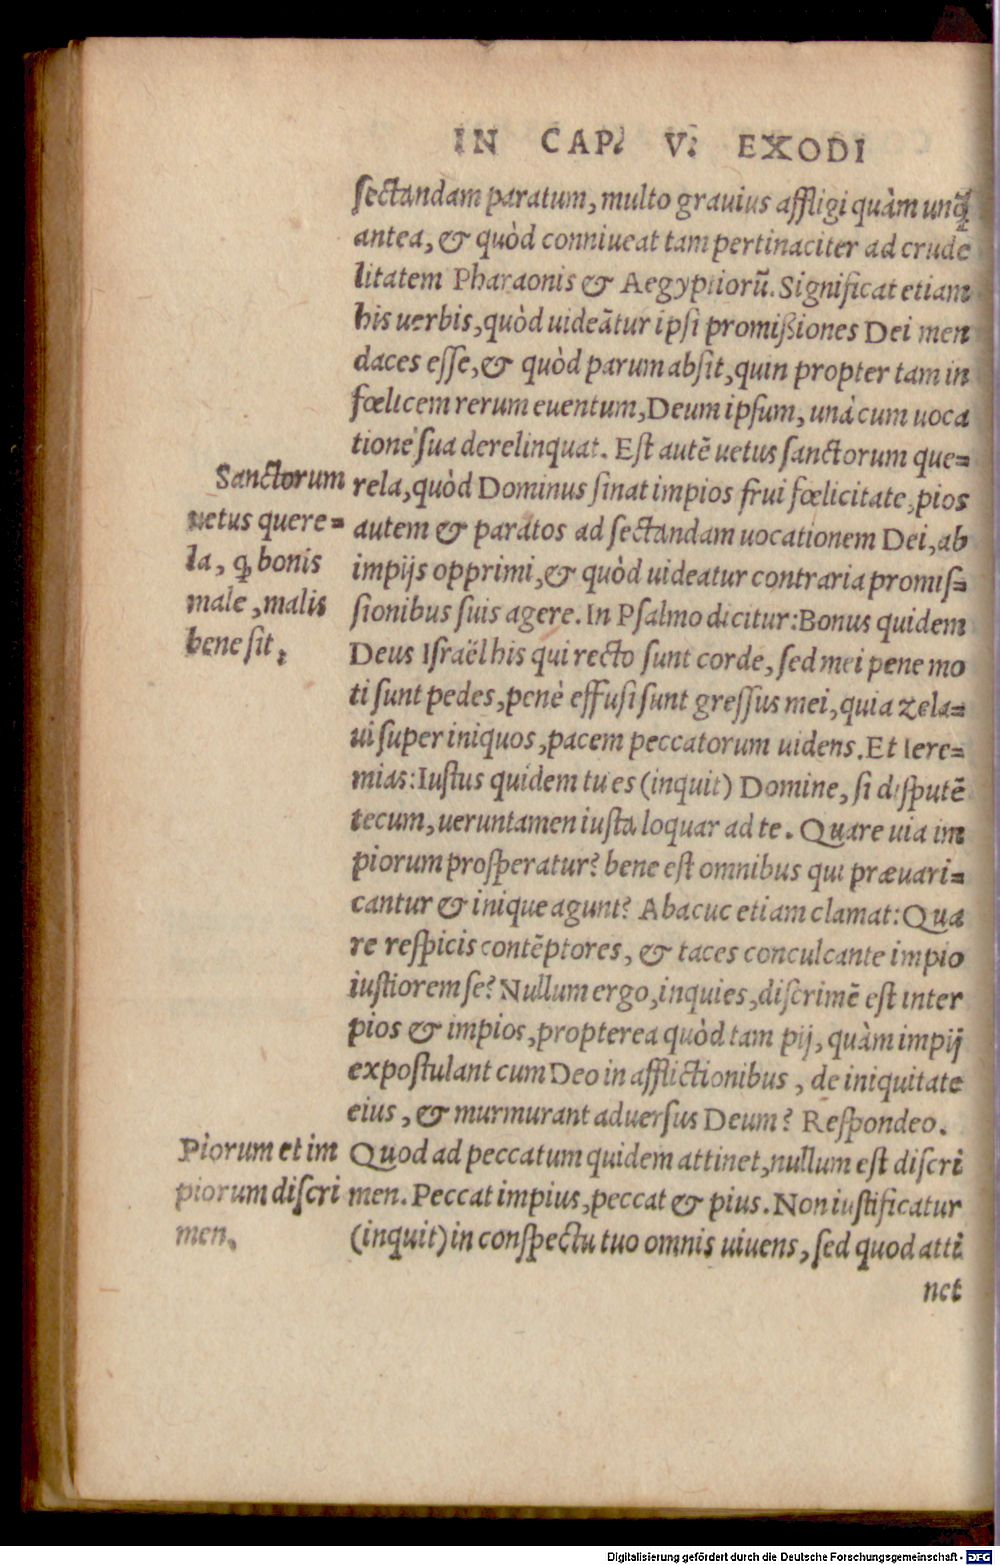 IN CAP. V. EXODI
sectandam paratum, multo grauius affligi quàm unq̃
antea, & quòd conniueat tam pertinaciter ad crude
litatem Pharaonis & Aegyptiorū. Significat etiam
his uerbis, quòd uideātur ipsi promißiones Dei men
daces esse, & quòd parum absit, quin propter tam in
fœlicem rerum euentum, Deum ipsum, unà cum uoca
tione sua derelinquat. Est autē uetus sanctorum que=
rela, quòd Dominus sinat impios frui fœlicitate, pios
autem & paratos ad sectandam uocationem Dei, ab
impijs opprimi, & quòd uideatur contraria promis=
sionibus suis agere. In Psalmo dicitur: Bonus quidem
Deus Israël his qui recto sunt corde, sed mei pene mo
ti sunt pedes, penè effusi sunt gressus mei, quia zela=
ui super iniquos, pacem peccatorum uidens. Et Iere=
mias: Iustus quidem tu es (inquit) Domine, si disputē
tecum, ueruntamen iusta loquar ad te. Quare uia im
piorum prosperatur? bene est omnibus qui præuari=
cantur & inique agunt? Abacuc etiam clamat: Qua
re respicis contēptores, & taces conculcante impio
iustiorem se? Nullum ergo, inquies, discrimē est inter
pios & impios, propterea quòd tam pij, quàm impij
expostulant cum Deo in afflictionibus, de iniquitate
eius, & murmurant aduersus Deum? Respondeo.
Quod ad peccatum quidem attinet, nullum est discri
men. Peccat impius, peccat & pius. Non iustificatur
(inquit) in conspectu tuo omnis uiuens, sed quod atti
net
Sanctorum
uetus quere=
la, ꝙ bonis
male, malis
bene sit.
Piorum et im
piorum discri
men.
Digitalisierung gefördert durch die Deutsche Forschungsgemeinschaft - DFG